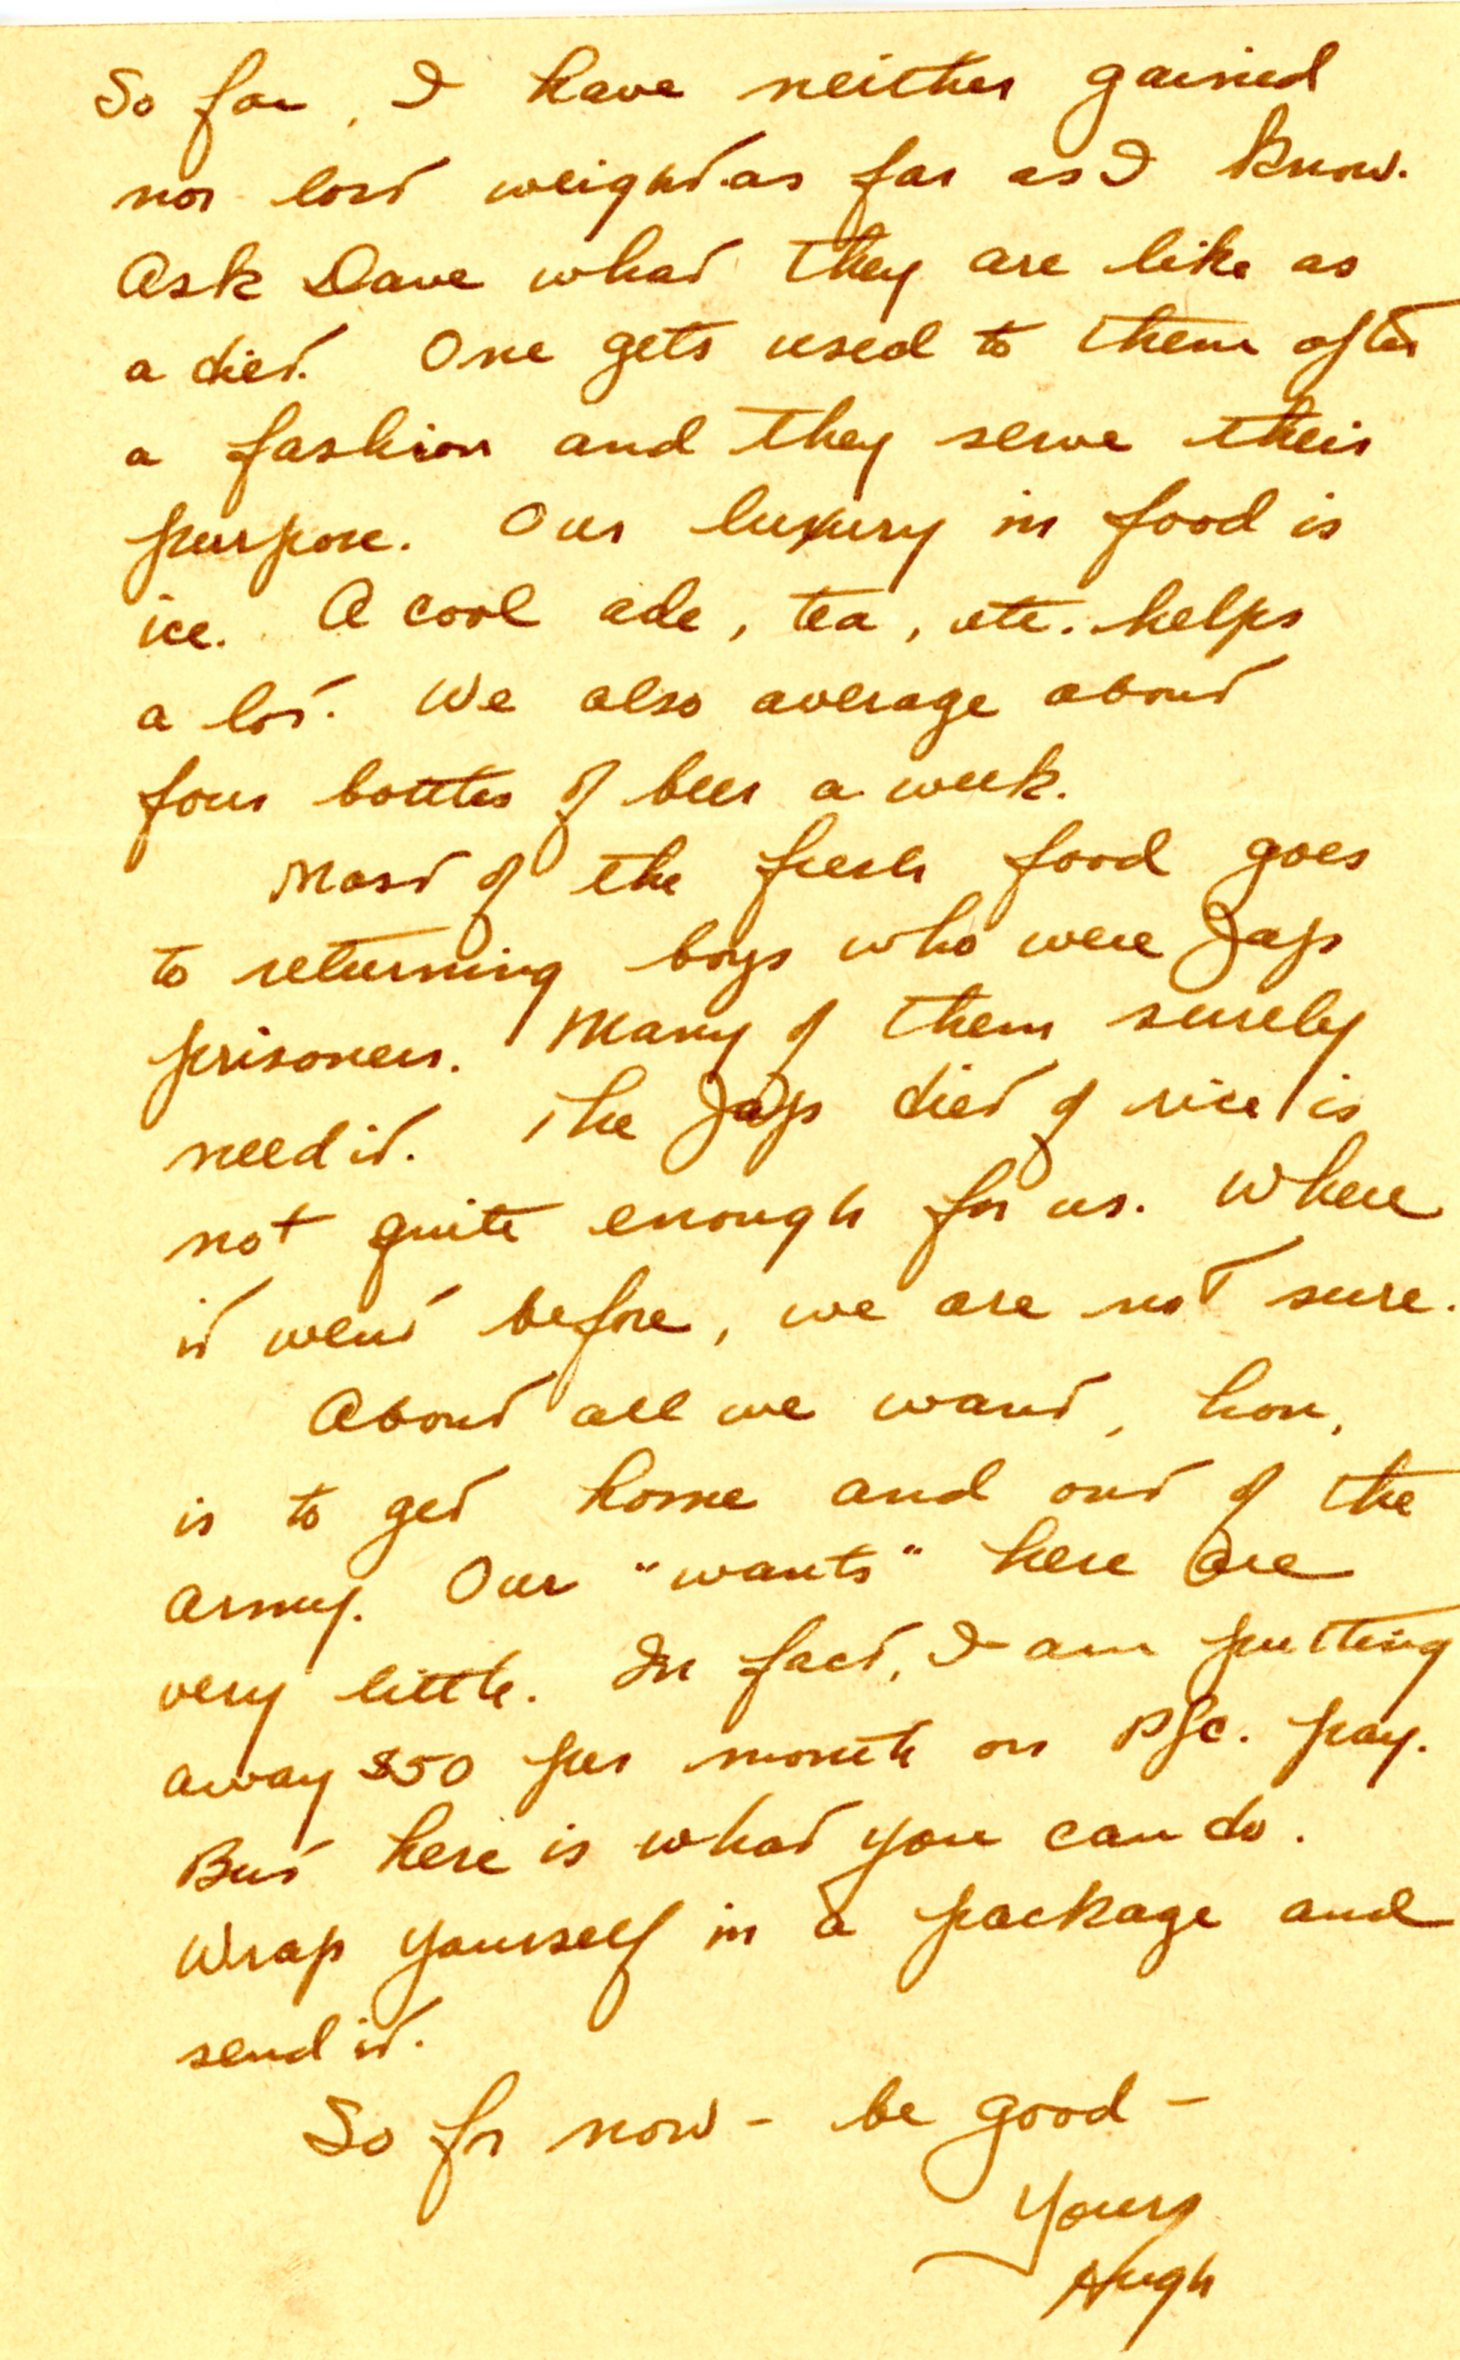 So far, I have neither gained
nor lost weight as far as I know.
Ask Dave what they are like as
a diet. One gets used to them after
a fashion and they serve their
purpose. Our luxury in food is
ice. A cool ade, tea, etc. helps
a lot. We also average about
four bottles of beer a week.
Most of the fresh food goes
to returning boys who were Jap
prisoners. Many of them surely
need it. The Japs diet of rice is
not quite enough for us. Where
it went before, we are not sure.
About all we want, hon,
is to get home and out of the
army. Our "wants" here are
very little. In fact, I am putting
away $50 per month on Pfc. pay.
But here is what you can do.
Wrap yourself in a package and
send it.
So for now - be good -
Yours
Hugh